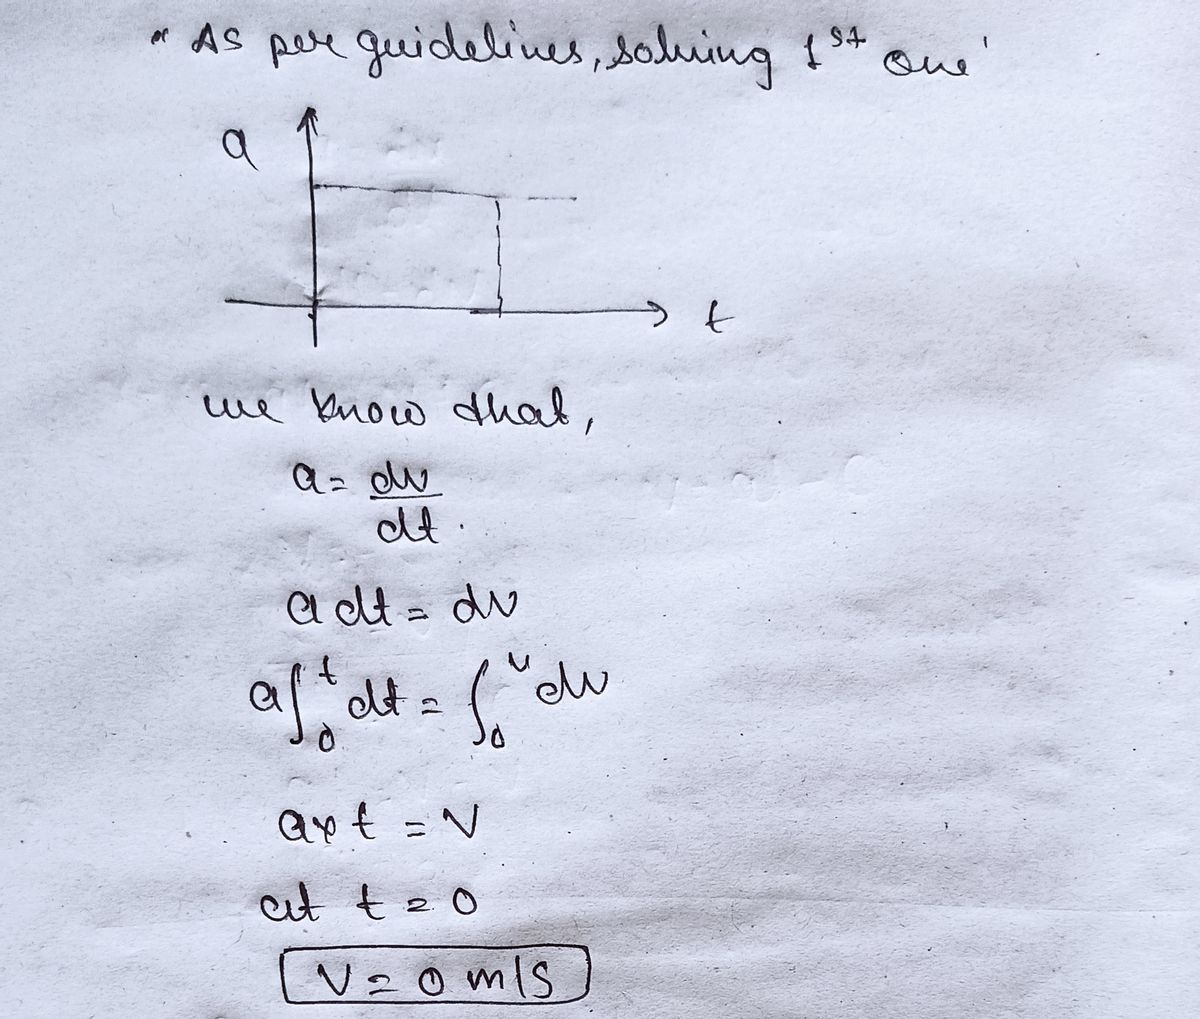 " As per guidelines, solving 1st one'
a
t
we know that,
a = dv
dt .
a dt = dv
a∫₀ᵗ dt = ∫₀ᵛ dv
a x t = v
at t = 0
v = 0 m/s